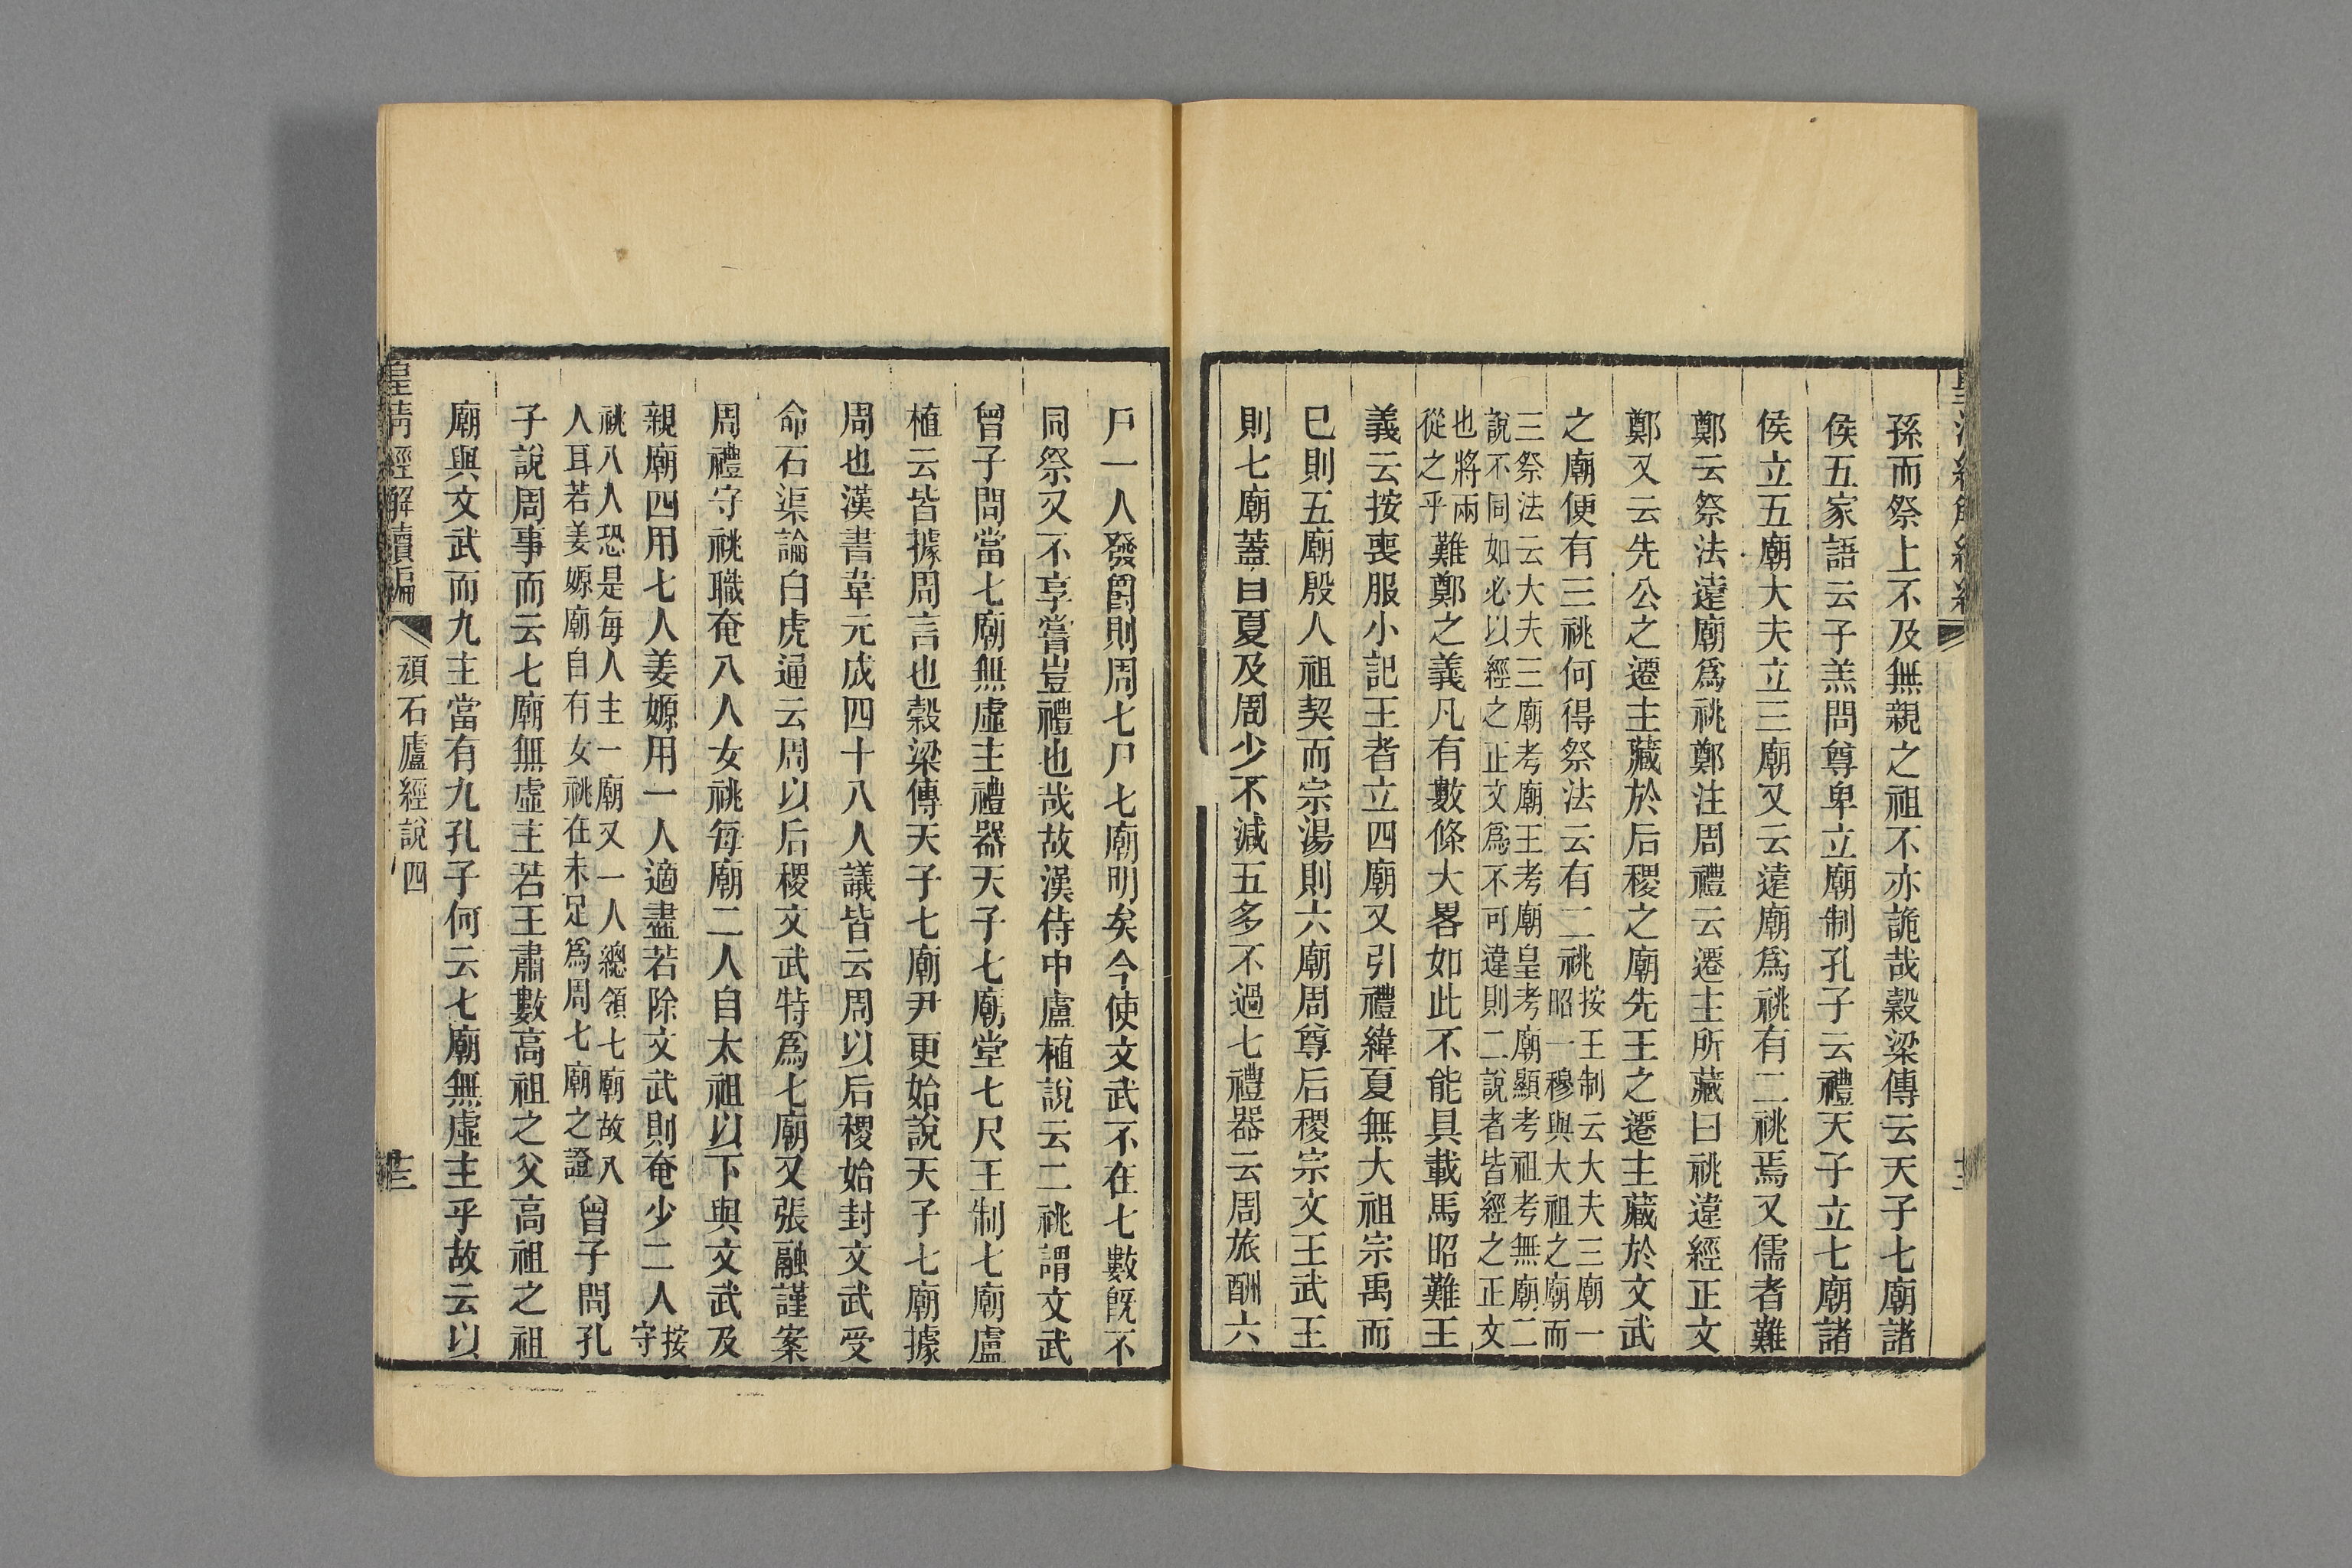 孫而祭上不及無親之祖不亦詭哉穀梁傳云天子七廟諸
侯五家語云子羔問尊卑立廟制孔子云禮天子立七廟諸
侯立五廟大夫立三廟又云遠廟爲祧有二祧焉又儒者難
鄭云祭法遠廟爲祧鄭注周禮云遷主所藏曰祧違經正文
鄭又云先公之遷主藏於后稷之廟先王之遷主藏於文武
之廟便有三祧何得祭法云有二祧
按王制云大夫三廟一
昭一穆與大祖之廟而
三祭法云大夫三廟考廟王考廟皇考廟顯考祖考無廟二
說不同如必以經之正文爲不可違則二說者皆經之正文
也將兩
從之乎
難鄭之義凡有數條大畧如此不能具載馬昭難王
義云按喪服小記王者立四廟又引禮緯夏無大祖宗禹而
巳則五廟殷人祖契而宗湯則六廟周尊后稷宗文王武王
則七廟蓋自夏及周少不減五多不過七禮器云周旅酬六
尸一人發爵則周七尸七廟明矣今使文武不在七數旣不
同祭又不享嘗豈禮也哉故漢侍中盧植說云二祧謂文武
曾子問當七廟無虛主禮器天子七廟堂七尺王制七廟盧
植云皆據周言也穀梁傳天子七廟尹更始說天子七廟據
周也漢書韋元成四十八人議皆云周以后稷始封文武受
命石渠論白虎通云周以后稷文武特爲七廟又張融謹案
周禮守祧職奄八人女祧每廟二人自太祖以下與文武及
親廟四用七人姜嫄用一人適盡若除文武則奄少二人
按
守
祧八人恐是每人主一廟又一人總領七廟故八
人耳若姜嫄廟自有女祧在未足爲周七廟之證
曾子問孔
子說周事而云七廟無虛主若王肅數高祖之父高祖之祖
廟與文武而九主當有九孔子何云七廟無虛主乎故云以
皇清經解續編
頑石廬經說四